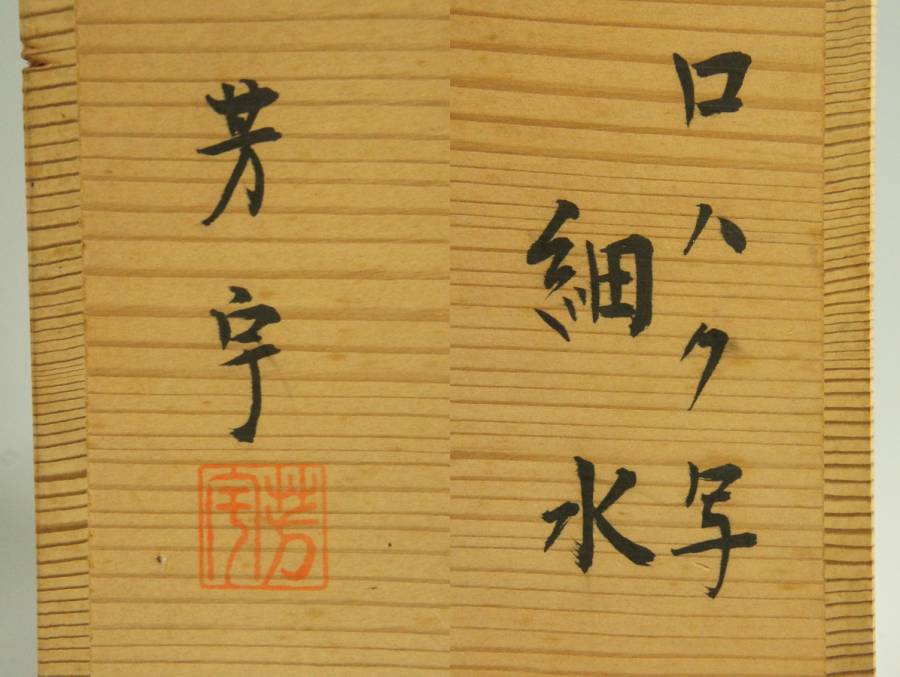 ロハク写
細水
芳宇
芳宇